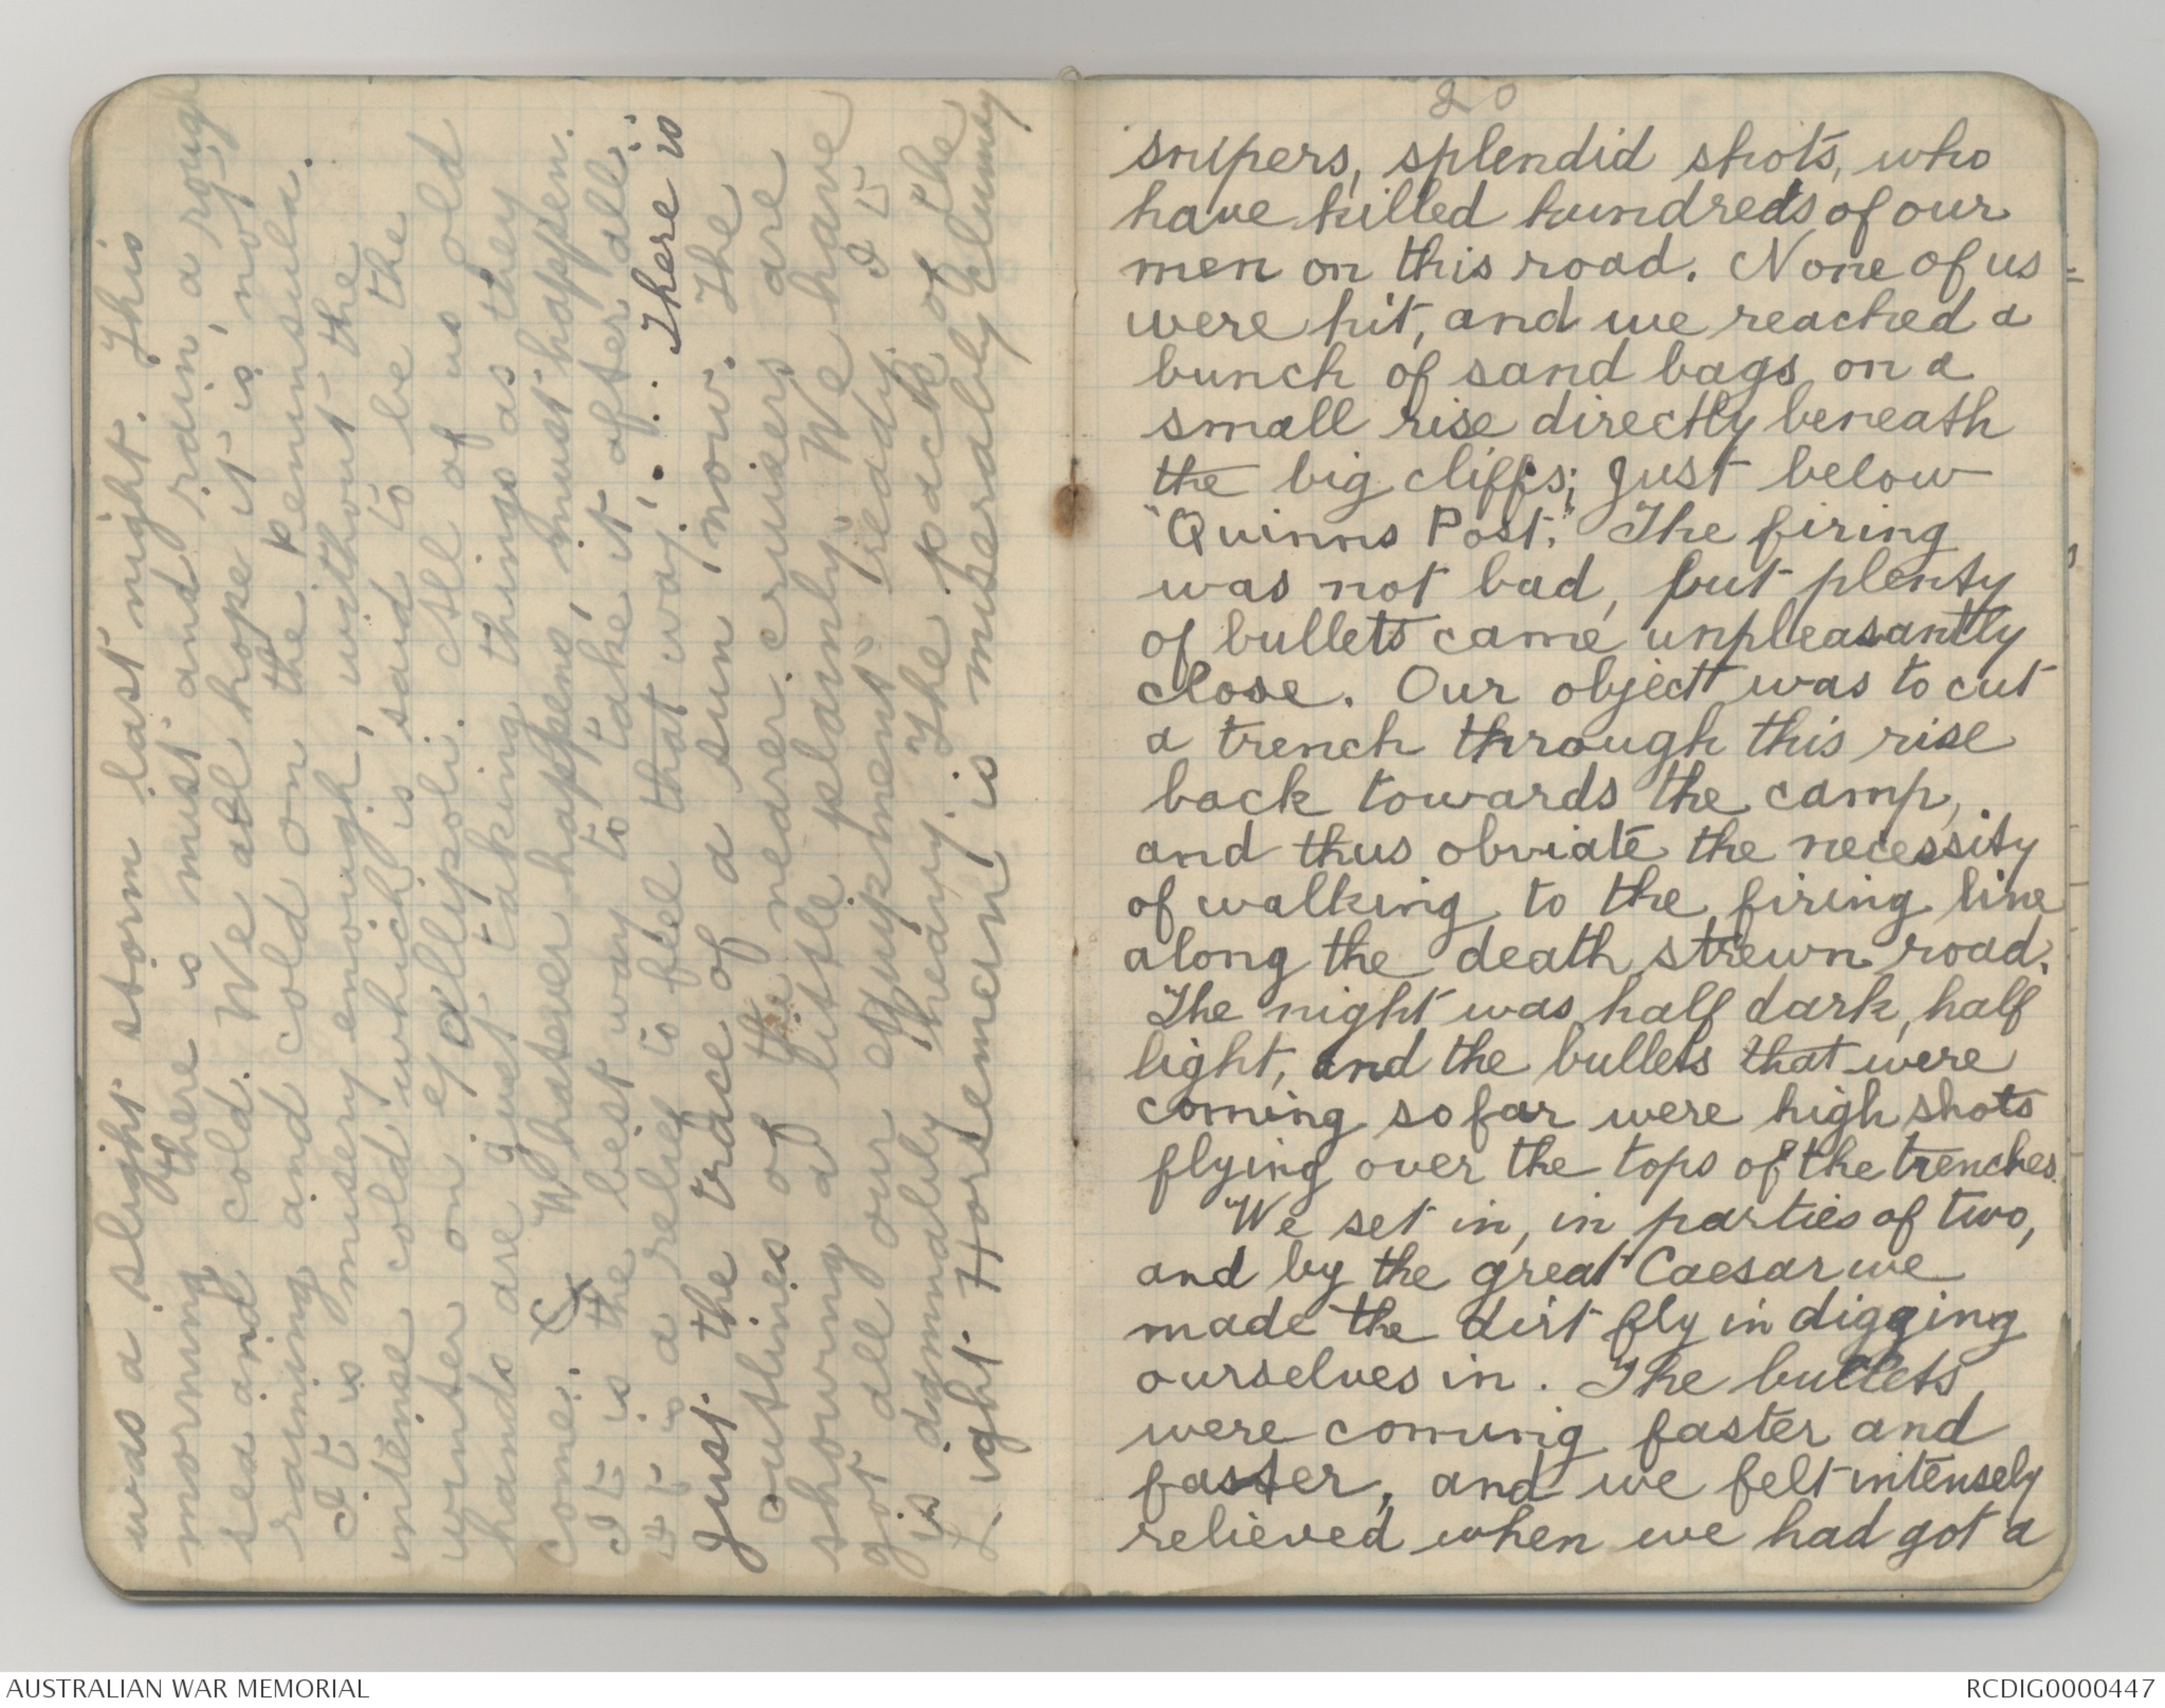 was a slight storm last night. This
morning there is mist and rain, a rough
sea and cold. We all hope it is, not
raining and cold on the peninsula.
It is misery enough, without the
intense cold which is said to be the
winter on Gallipoli. All of us old
hands are just taking things as they
come. & Whatever happens, must happen.
It is the best way to take it after all:
it is a relief to feel that way. . . . There is
just the trace of a sun now. The
outlines of the nearer cruisers are
showing a little plainly. We have
got all our equipment ready. It
is damnably heavy. The pack of the
Light Horseman is miserably clumsy
20
snipers, splendid shots, who
have killed hundreds of our
men on this road. None of us
were hit, and we reached a
bunch of sand bags on a
small rise directly beneath
the big cliffs; just below
"Quinns Post." The firing
was not bad, but plenty
of bullets came unpleasantly
close. Our object was to cut
a trench through this rise
back towards the camp,
and thus obviate the necessity
of walking to the firing line
along the death strewn road.
The night was half dark, half
light, and the bullets that were
coming so far were high shots
flying over the tops of the trenches.
We set in, in parties of two,
and by the great Caesar we
made the dirt fly in digging
ourselves in. The bullets
were coming faster and
faster, and we felt intensely
relieved when we had got a
AUSTRALIAN WAR MEMORIAL
RCDIG0000447